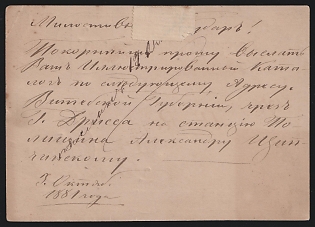 Милостивый Государь!
Покорнейше прошу выслать
Ваш Иллюстрированной Ката
лог по следующему, Адресу
Витебской Губерний, чрез
г. Дрисса на станцию
Александру
7. Октяб.
1881 года